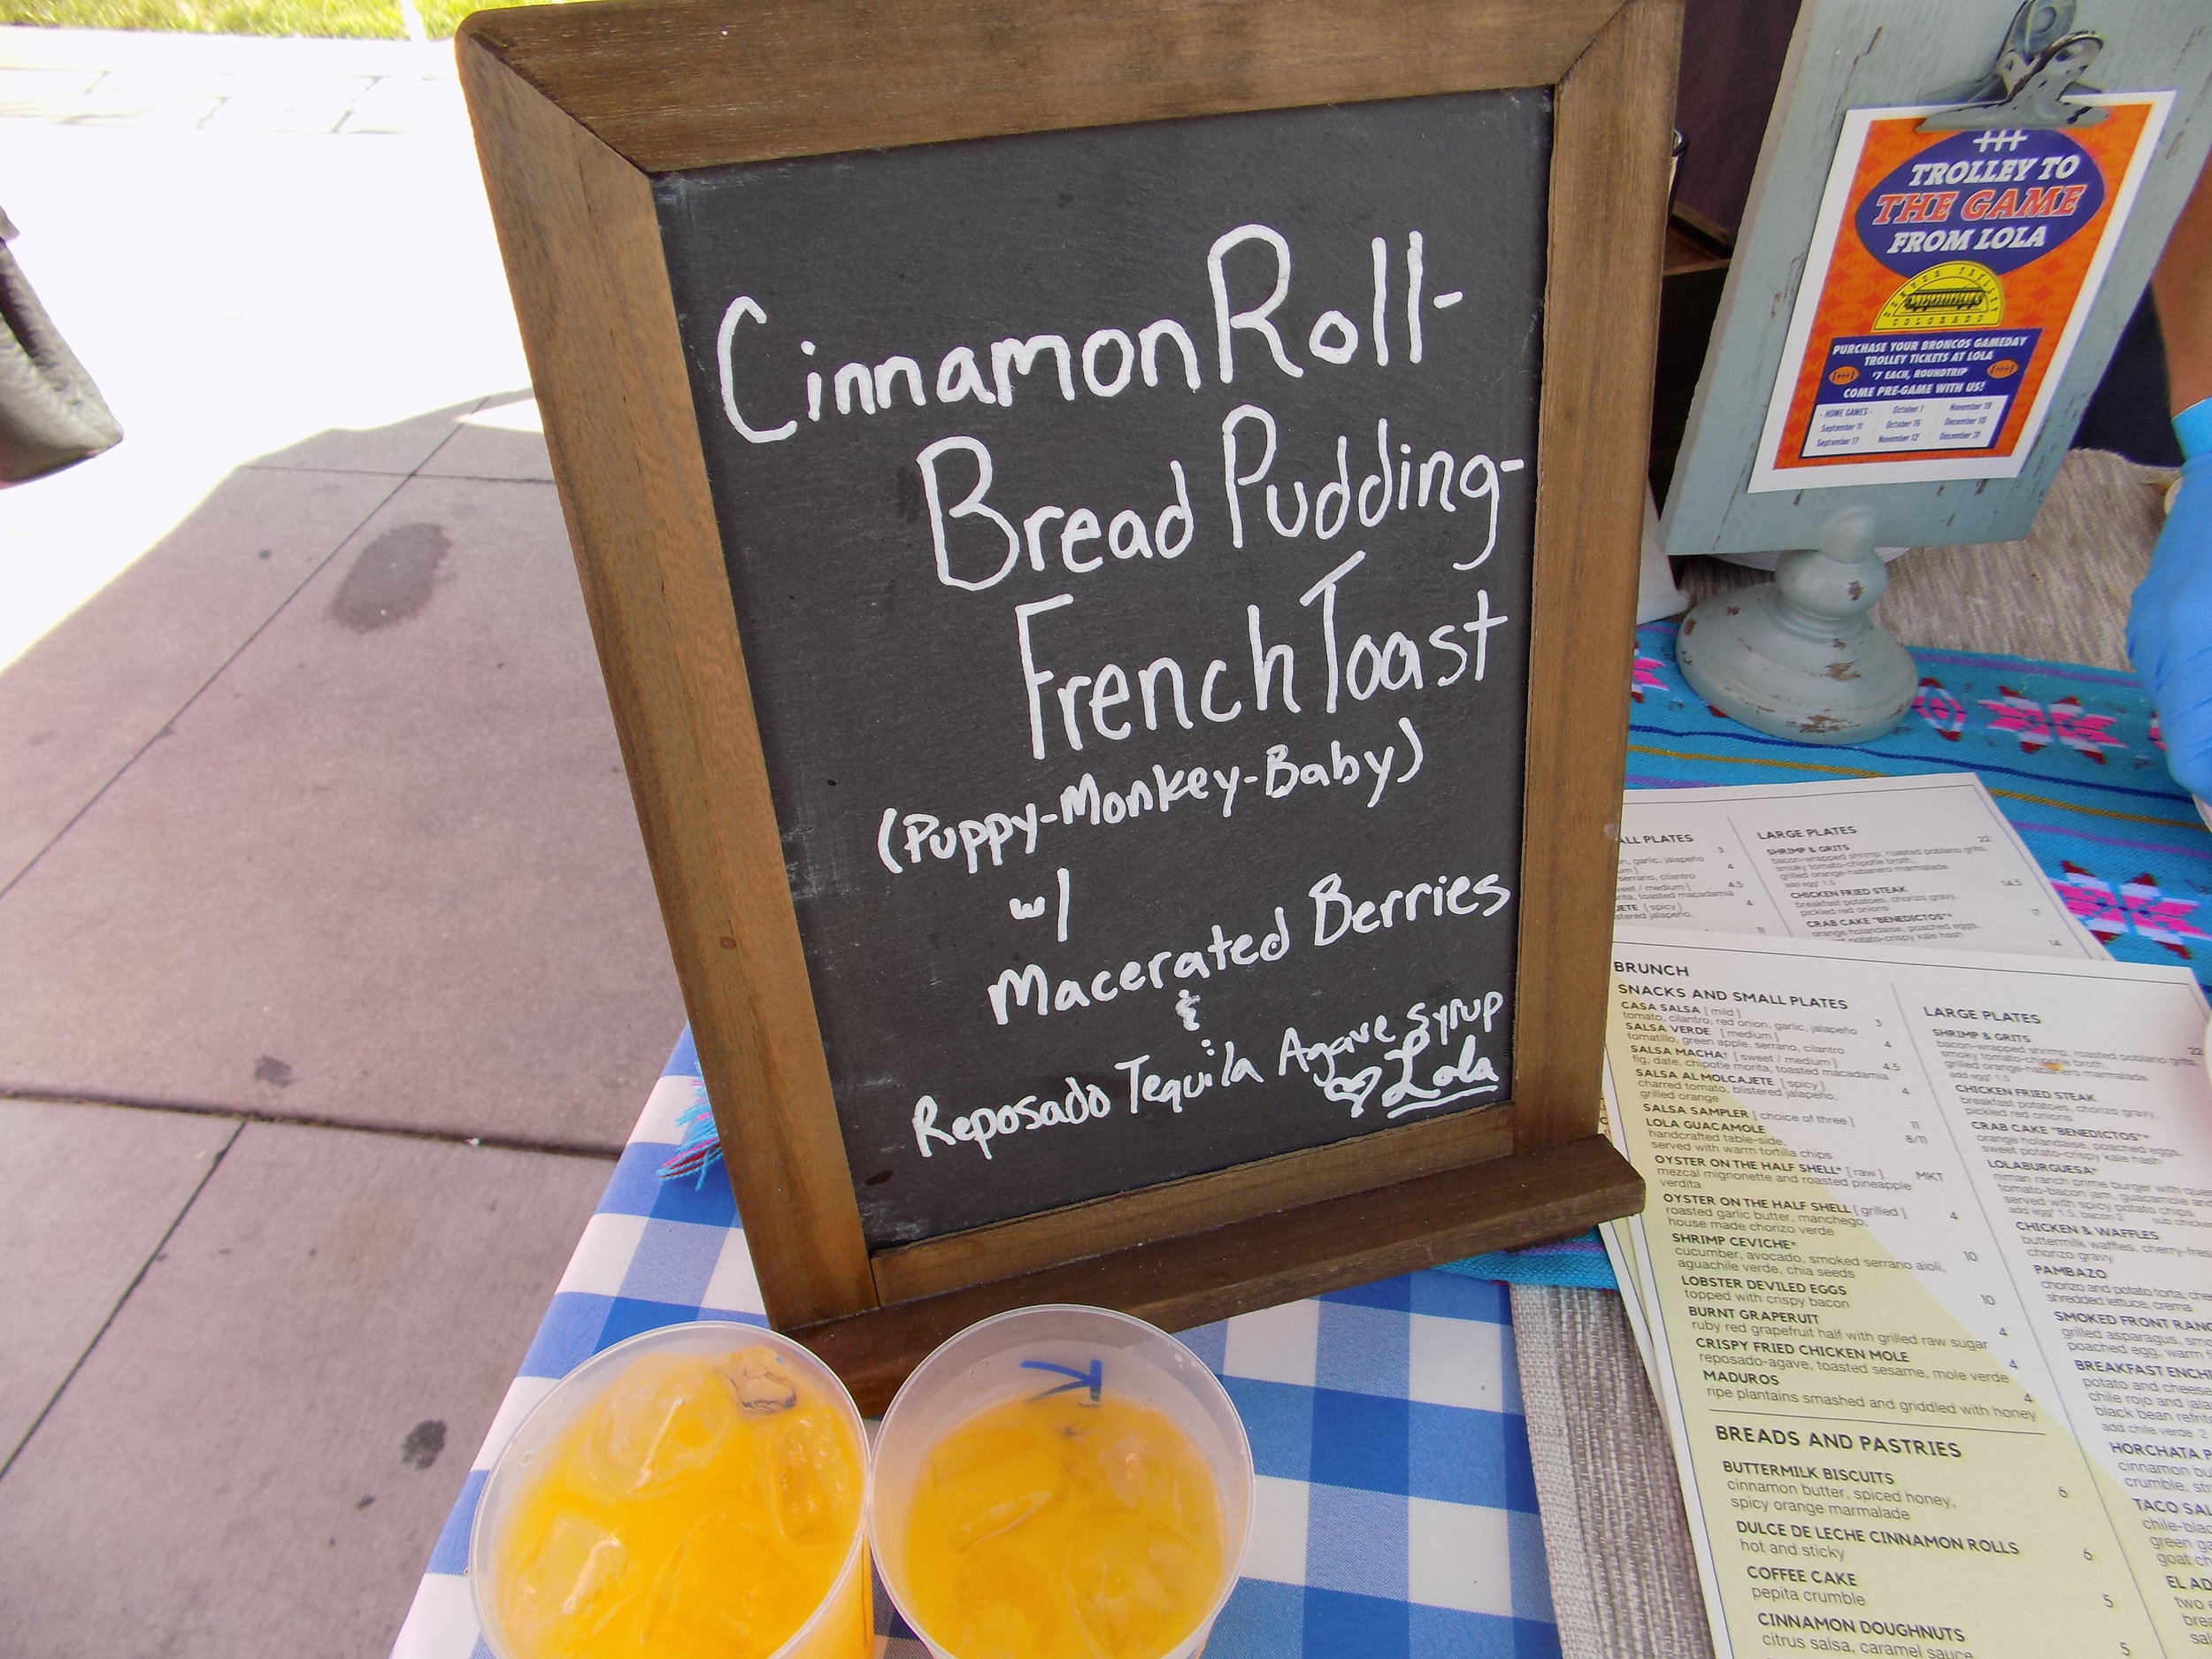 Cinnamon Roll-
Bread Pudding-
French Toast
(Puppy-Monkey-Baby)
w/
Macerated Berries
&
Reposado Tequila Agave Syrup
♡ Lola
TROLLEY TO
THE GAME
FROM LOLA
COLORADO
PURCHASE YOUR BRONCOS GAMEDAY
TROLLEY TICKETS AT LOLA
$7 EACH, ROUNDTRIP
COME PRE-GAME WITH US!
- HOME GAMES -
September 11
September 17
October 1
October 15
November 12
November 19
December 10
December 31
ALL PLATES
3
garlic, jalapeño
4
serrano, cilantro
4.5
toasted macadamia
4
[spicy]
11
LARGE PLATES
SHRIMP & GRITS 22
bacon-wrapped shrimp, roasted poblano grits,
smoky tomato-chipotle broth,
grilled orange-habanero marmalade
add egg* 1.5
CHICKEN FRIED STEAK 14.5
breakfast potatoes, chorizo gravy,
pickled red onions
CRAB CAKE "BENEDICTOS"* 17
orange holandaise, poached eggs,
potato-crispy kale hash
14
BRUNCH
SNACKS AND SMALL PLATES
CASA SALSA [ mild ] 3
tomato, cilantro, red onion, garlic, jalapeño
SALSA VERDE [ medium ] 4
tomatillo, green apple, serrano, cilantro
SALSA MACHA† [ sweet / medium ] 4.5
fig, date, chipotle morita, toasted macadamia
SALSA AL MOLCAJETE [ spicy ] 4
charred tomato, blistered jalapeño,
grilled orange
SALSA SAMPLER [ choice of three ] 11
LOLA GUACAMOLE 8/11
handcrafted table-side,
served with warm tortilla chips
OYSTER ON THE HALF SHELL* [ raw ] MKT
mezcal mignonette and roasted pineapple
verdita
OYSTER ON THE HALF SHELL [ grilled ] 4
roasted garlic butter, manchego,
house made chorizo verde
SHRIMP CEVICHE* 10
cucumber, avocado, smoked serrano aioli,
aguachile verde, chia seeds
LOBSTER DEVILED EGGS 10
topped with crispy bacon
BURNT GRAPEFRUIT 4
ruby red grapefruit half with grilled raw sugar
CRISPY FRIED CHICKEN MOLE 4
reposado-agave, toasted sesame, mole verde
MADUROS 4
ripe plantains smashed and griddled with honey
BREADS AND PASTRIES
BUTTERMILK BISCUITS 6
cinnamon butter, spiced honey,
spicy orange marmalade
DULCE DE LECHE CINNAMON ROLLS 6
hot and sticky
COFFEE CAKE 5
pepita crumble
CINNAMON DOUGHNUTS 5
citrus salsa, caramel sauce
LARGE PLATES
SHRIMP & GRITS 22
bacon-wrapped shrimp, roasted poblano grits,
smoky tomato-chipotle broth,
grilled orange-habanero marmalade
add egg* 1.5
CHICKEN FRIED STEAK
breakfast potatoes, chorizo gravy,
pickled red onions
CRAB CAKE "BENEDICTOS"*
orange holandaise, poached eggs,
sweet potato-crispy kale hash
LOLABURGUESA*
niman ranch prime burger with
tomato-bacon jam, guacamole
served with spicy potato chips
add egg* 1.5, bacon 2
CHICKEN & WAFFLES
buttermilk waffles,
chorizo gravy
PAMBAZO
chorizo and potato torta,
shredded lettuce, crema
SMOKED FRONT
grilled asparagus,
poached egg, warm
BREAKFAST
potato and
chile rojo and
black bean
add chile verde 2
HORCHATA
cinnamon
crumble,
TACO
green
goat
two